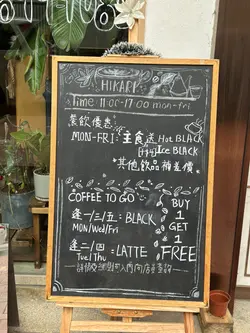 HIKARI
Time 11:00-17:00 mon-fri
餐飲優惠
MON-FRI:主食送 Hot BLACK
Ice BLACK
*其他飲品補差價
COFFEE TO GO
逢一/三/五:BLACK
MON/Wed/Fri
逢二/四
Tue/Thu
:LATTE
BUY
1
GET
1
FREE